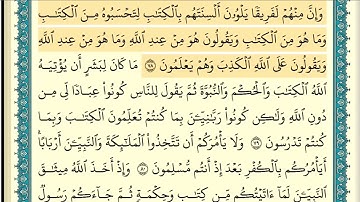 وَإِنَّ مِنْهُمْ لَفَرِيقًا يَلْوُۥنَ أَلْسِنَتَهُم بِٱلْكِتَٰبِ لِتَحْسَبُوهُ مِنَ ٱلْكِتَٰبِ
وَمَا هُوَ مِنَ ٱلْكِتَٰبِ وَيَقُولُونَ هُوَ مِنْ عِندِ ٱللَّهِ وَمَا هُوَ مِنْ عِندِ ٱللَّهِ
وَيَقُولُونَ عَلَى ٱللَّهِ ٱلْكَذِبَ وَهُمْ يَعْلَمُونَ ٧٨ مَا كَانَ لِبَشَرٍ أَن يُؤْتِيَهُ
ٱللَّهُ ٱلْكِتَٰبَ وَٱلْحُكْمَ وَٱلنُّبُوَّةَ ثُمَّ يَقُولَ لِلنَّاسِ كُونُوا۟ عِبَادًا لِّى مِن
دُونِ ٱللَّهِ وَلَٰكِن كُونُوا۟ رَبَّٰنِيِّۦنَ بِمَا كُنتُمْ تُعَلِّمُونَ ٱلْكِتَٰبَ وَبِمَا
كُنتُمْ تَدْرُسُونَ ٧٩ وَلَا يَأْمُرَكُمْ أَن تَتَّخِذُوا۟ ٱلْمَلَٰٓئِكَةَ وَٱلنَّبِيِّۦنَ أَرْبَابًا ۗ
أَيَأْمُرُكُم بِٱلْكُفْرِ بَعْدَ إِذْ أَنتُم مُّسْلِمُونَ ٨٠ وَإِذْ أَخَذَ ٱللَّهُ مِيثَٰقَ
ٱلنَّبِيِّۦنَ لَمَآ ءَاتَيْتُكُم مِّن كِتَٰبٍ وَحِكْمَةٍ ثُمَّ جَآءَكُمْ رَسُولٌ